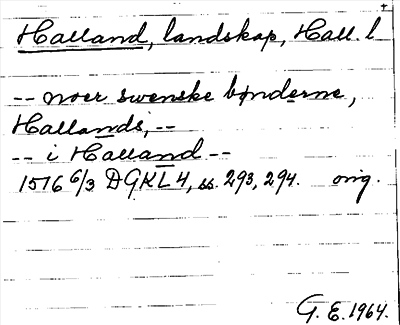 Halland, landskap, Hall. l
-- noer swenske bønderne,
Hallands, --
-- i Halland --
1516 6/3 DGKL 4, ss. 293, 294. orig.
G. E. 1964.